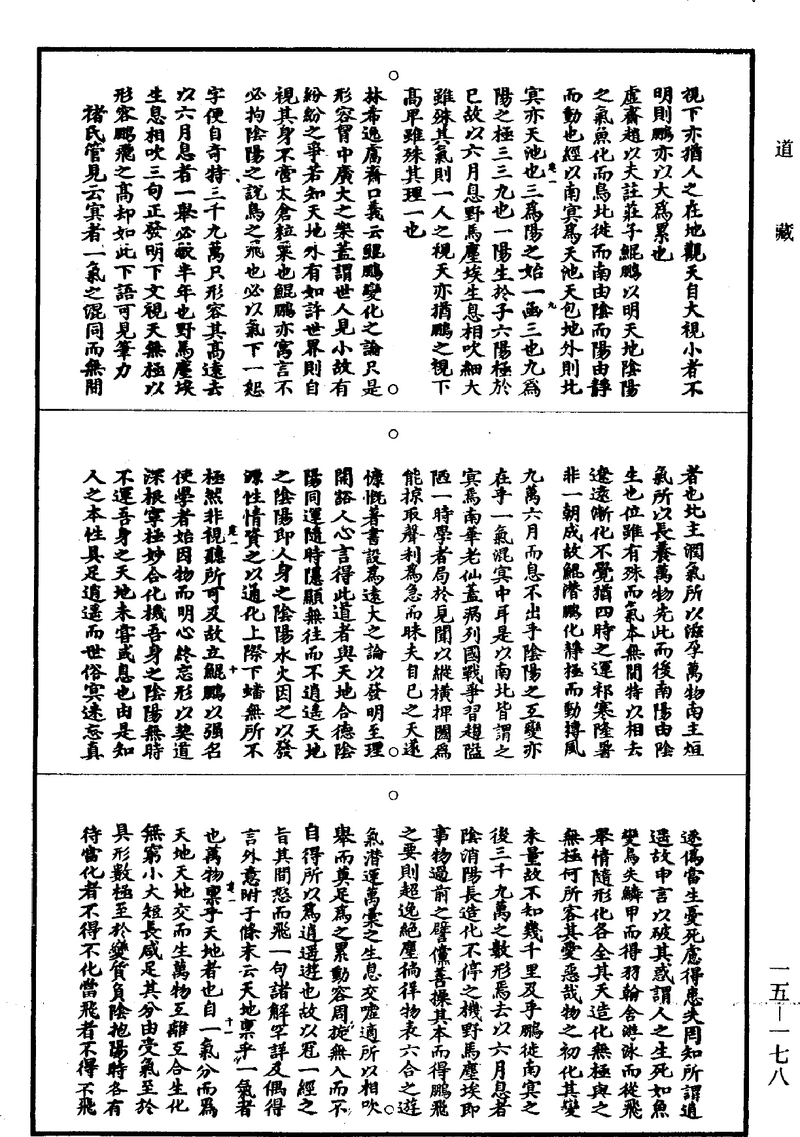 道藏
視下亦猶人之在地觀天自大視小者不
明則鵬亦以大為累也
虛齋趙以夫註莊子鯤鵬以明天地陰陽
之氣魚化而鳥北徙而南由陰而陽由靜
而動也經以南冥為天池天包地外則北
冥亦天池也三為陽之始一函三也九為
陽之極三三九也一陽生於子六陽極於
巳故以六月息野馬塵埃生息相吹細大
雖殊其氣則一人之視天亦猶鵬之視下
高卑雖殊其理一也
林希逸鬳齋口義云鯤鵬變化之論只是
形容胷中廣大之樂蓋謂世人見小故有
紛紛之爭若知天地外有如許世界則自
視其身不啻太倉粒粟也鯤鵬亦寓言不
必拘陰陽之說鳥之飛也必以氣下一怒
字便自奇特三千九萬只形容其高遠去
以六月息者一舉必歇半年也野馬塵埃
生息相吹三句正發明下文視天無極以
形容鵬飛之高却如此下語可見筆力
褚氏管見云冥者一氣之混同而無間
者也北主潤氣所以滋孕萬物南主烜
氣所以長養萬物先此而後南陽由陰
生也位雖有殊而氣本無間特以相去
遼遠漸化不覺猶四時之運祁寒隆暑
非一朝成故鯤潛鵬化靜極而動摶風
九萬六月而息不出乎陰陽之互變亦
在乎一氣混冥中耳是以南北皆謂之
冥焉南華老仙蓋病列國戰爭習趨隘
陋一時學者局於見聞以縱橫捭闔為
能掠取聲利為急而昧夫自己之天遂
慷慨著書設為遠大之論以發明至理
開豁人心言得此道者與天地合德陰
陽同運隨時隱顯無往而不逍遙天地
之陰陽即人身之陰陽水火因之以發
源性情資之以通化上際下蟠無所不
極然非視聽所可及故立鯤鵬以強名
使學者始因物而明心終忘形以契道
深根寧極妙合化機吾身之陰陽無時
不運吾身之天地未嘗或息也由是知
人之本性具足逍遙而世俗冥迷忘真
逐偽當生憂死慮得患失罔知所謂逍
遙故申言以破其惑謂人之生死如魚
變鳥失鱗甲而得羽翰舍游泳而從飛
舉情隨形化各全其天造化無極與之
無極何所容其愛惡哉物之初化其變
未量故不知幾千里及乎鵬徙南冥之
後三千九萬之數形焉去以六月息者
陰消陽長造化不停之機野馬塵埃即
事物過前之譬儻善操其本而得鵬飛
之要則超逸絕塵徜徉物表六合之遊
氣潛運萬彙之生息交噓適所以相吹
舉而莫足為之累動容周旋無入而不
自得所以為逍遙遊也故以冠一經之
旨其間怒而飛一句諸解罕詳及偶得
言外意附于條末云天地禀乎一氣者
也萬物禀乎天地者也自一氣分而為
天地天地交而生萬物互離互合生化
無窮小大短長咸足其分由受氣至於
具形數極至於變質負陰抱陽時各有
待當化者不得不化當飛者不得不飛
卷一
九
卷一
十
卷一
十一
一五—一七八